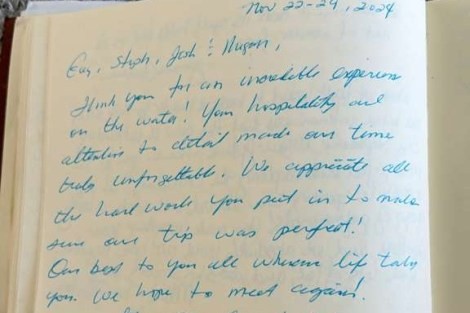 Nov 22-29, 2024
Steph, Josh & Megan,
Thank you for an incredible experience
on the water! Your hospitality and
attention to detail made our time
truly unforgettable. We appreciate all
the hard work you put in to make
sure our trip was perfect!
Our best to you all wherever life takes
you. We hope to meet again!